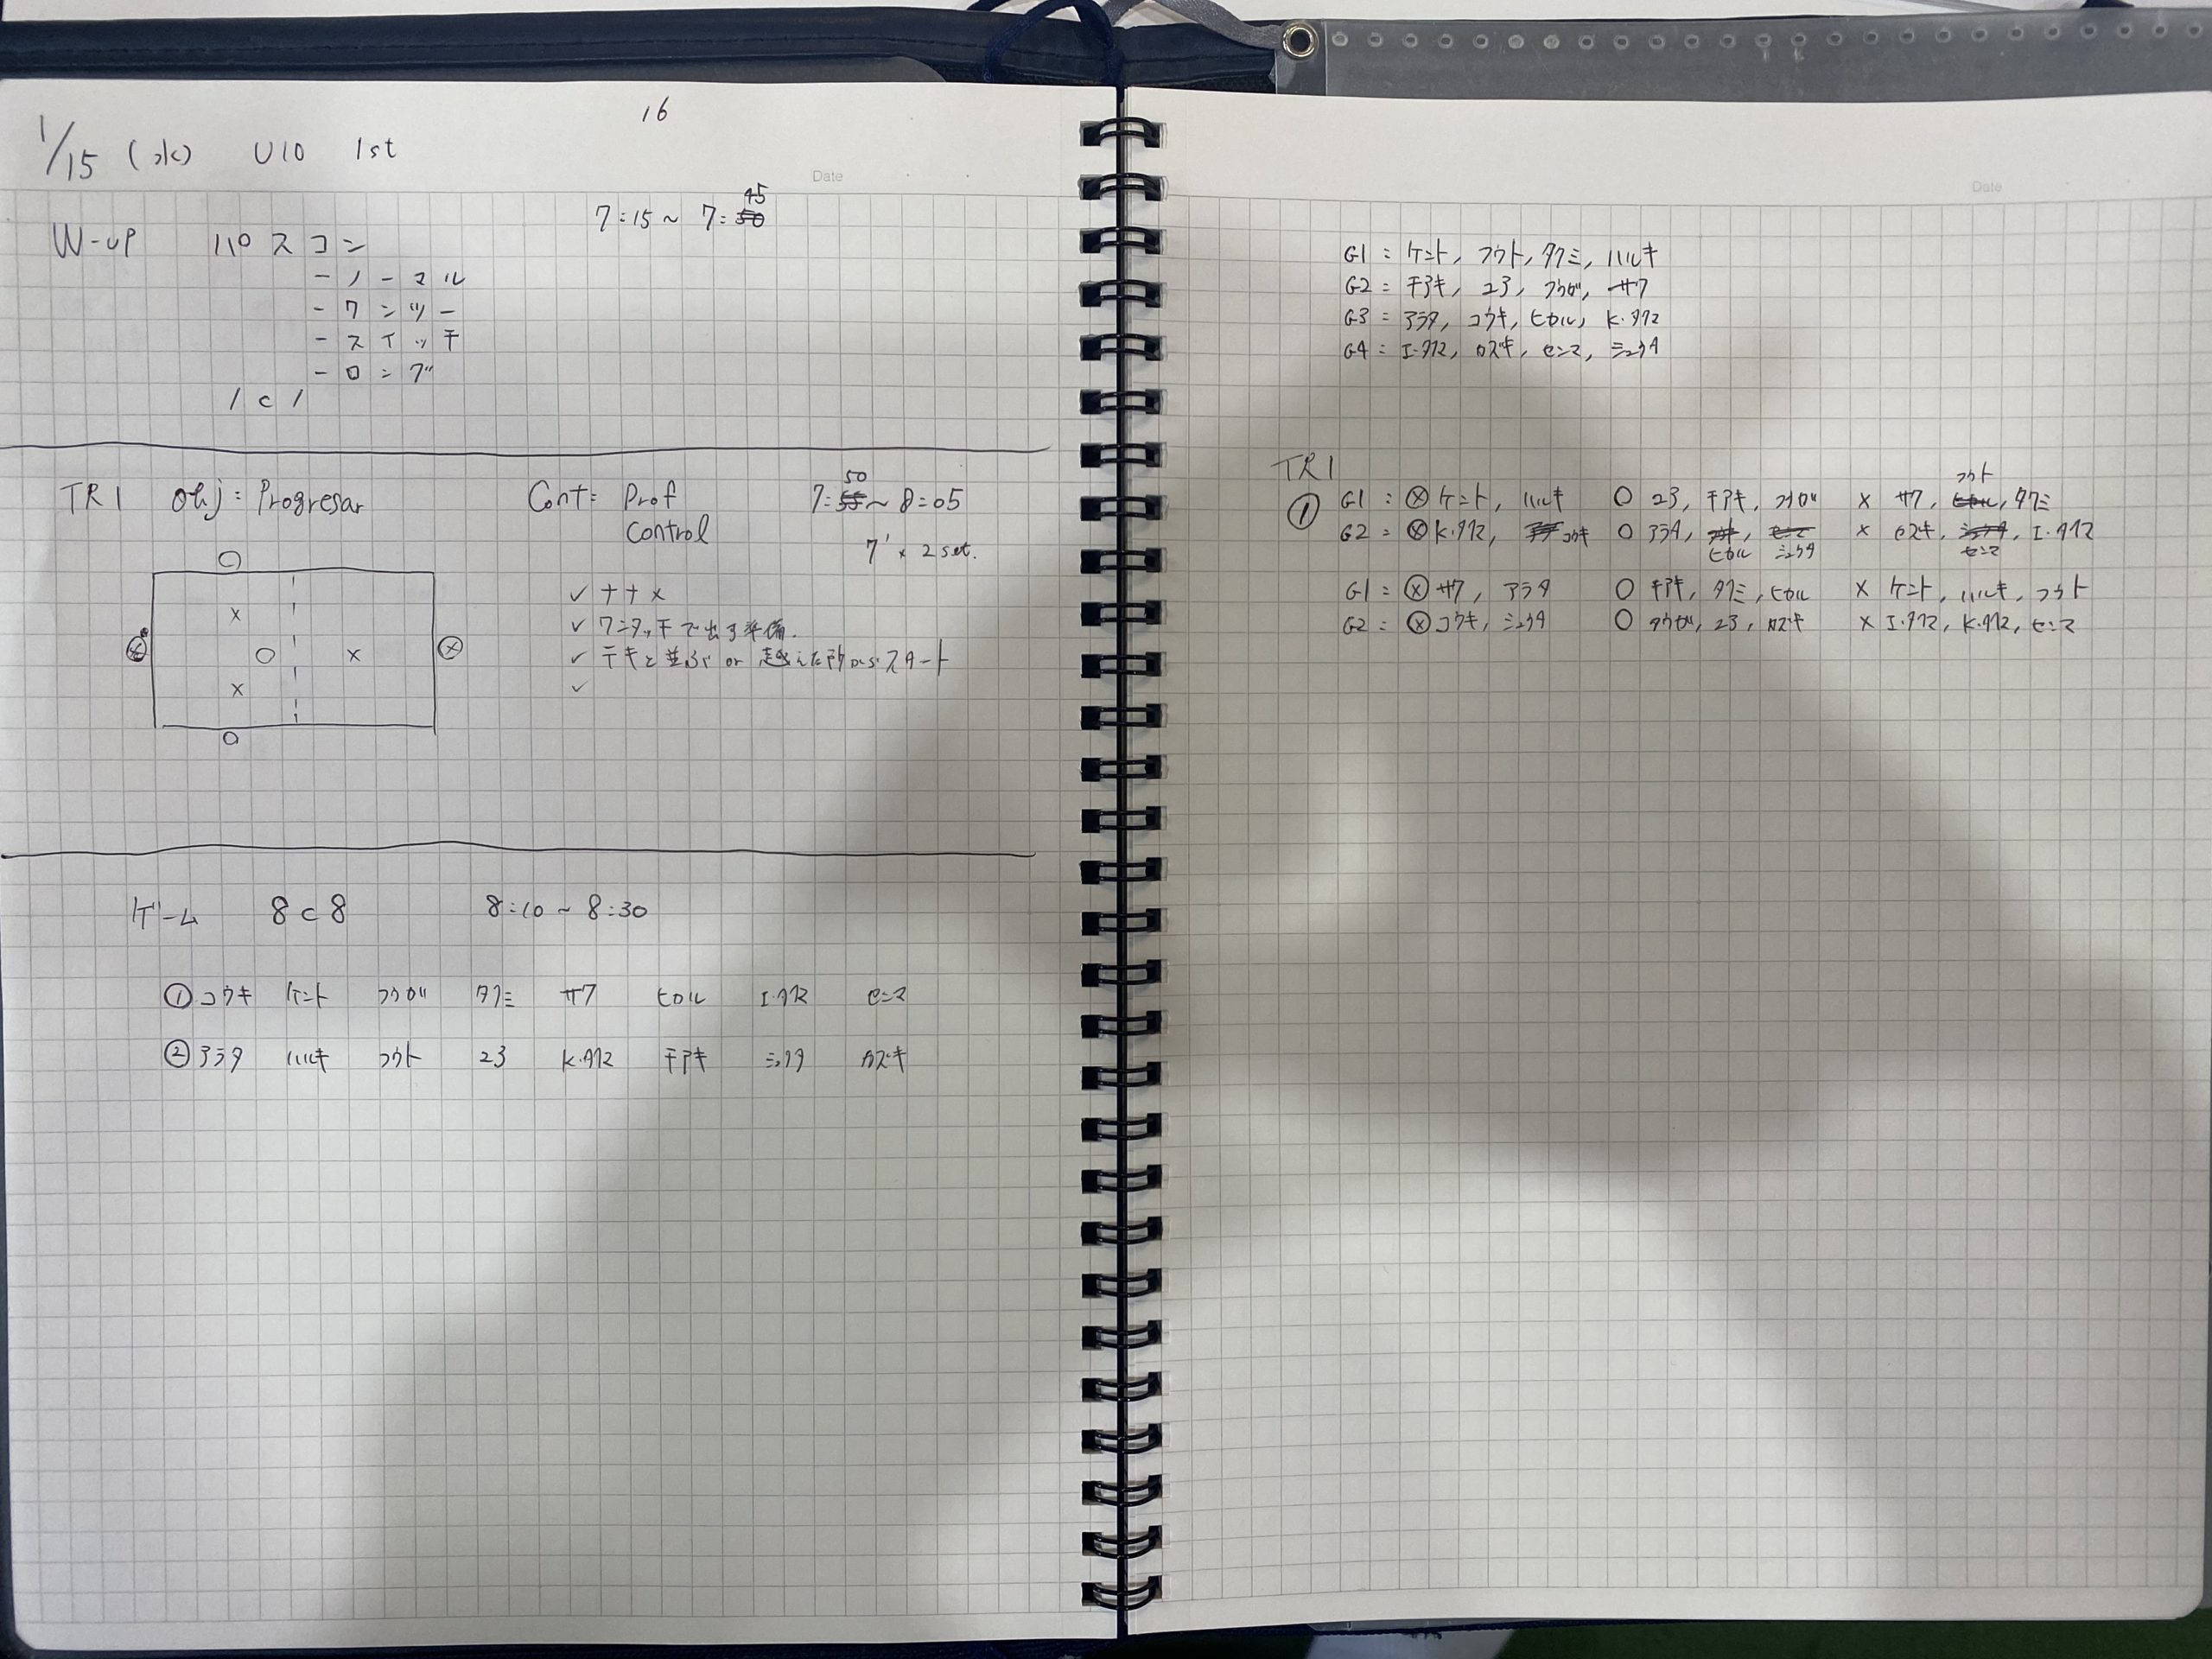 16
1/15 (水) U10 1st
Date
7:15~ 7:50 45
W-up パスコン
- ノーマル
- ワンツー
- スイッチ
- ロング
1c1
TR1 Obj: Progresar Cont: Prof control 7:55 50 ~ 8:05
7' × 2set.
✓ ナナメ
✓ ワンタッチで出す準備.
✓ テキと並ぶ or 越えた所からスタート
✓
ゲーム 8c8 8:10 ~ 8:30
① コウキ ケント フウガ タクミ サワ ヒカル I.タクマ センマ
② アラタ ハルキ フウト ユウ K.タクマ チアキ シュウタ カズキ
Date
G1: ケント, フウト, タクミ, ハルキ
G2: チアキ, ユウ, フウガ, サワ
G3: アラタ, コウキ, ヒカル, K.タクマ
G4: I.タクマ, カズキ, センマ, シュウタ
TR1
① G1: ⊗ ケント, ハルキ ○ ユウ, チアキ, フウガ × サワ, ヒカル フウト, タクミ
G2: ⊗ K.タクマ, コウキ ○ アラタ, ヒカル シュウタ × カズキ, シュウタ センマ, I.タクマ
G1: ⊗ サワ, アラタ ○ チアキ, タクミ, ヒカル × ケント, ハルキ, フウト
G2: ⊗ コウキ, シュウタ ○ フウガ, ユウ, カズキ × I.タクマ, K.タクマ, センマ